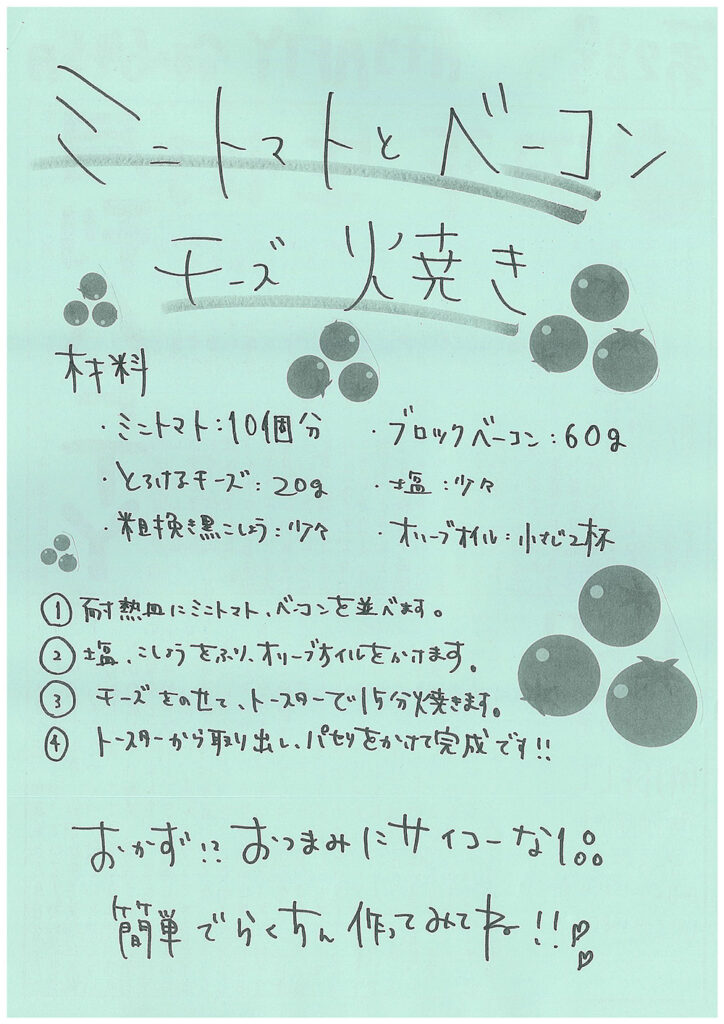 ミニトマトとベーコン
チーズ 火焼き
材料
・ミニトマト:10個分 ・ブロックベーコン:60g
・とろけるチーズ:20g ・塩:少々
・粗挽き黒こしょう:少々 ・オリーブオイル:小さじ2杯
① 耐熱皿にミニトマト、ベーコンを並べます。
② 塩、こしょうをふり、オリーブオイルをかけます。
③ チーズをのせて、トースターで15分焼きます。
④ トースターから取り出し、パセリをかけて完成です!!
おかず!?おつまみにサイコーな1品
簡単でらくちん作ってみてね!!